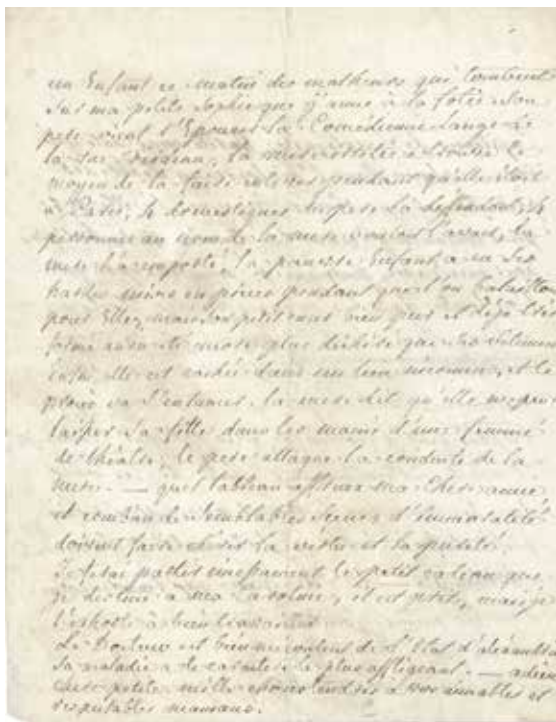 un Enfant ce matin des malheurs qui tombent
sur ma petite Sophie que j'aime à la folie. Son
père vient d'Epouser la Comédienne Lange. Le
la sur la mere a trouvé le
moyen de la faire enlever pendant qu'elle étoit
à Paris, 4 domestiques du pere la défendant, 4
personnes au nom de la mere voulant l'avoir, la
mere l'a emporté, la pauvre Enfant a eu ses
habits mis en pieces pendant que l'on bataillait
pour Elle, mais son petit cœur
formé encore plus déchiré que ses vêtements
enfin elle est cachée dans un lieu inconnu, et le
procès va s'entamer. la mere dit qu'elle ne peut
laisser sa fille dans les mains d'une femme
de théâtre, le pere attaque la conduite de la
mere. — quel tableau affreux ma chere amie
et combien de semblables scenes d'immoralité
doivent faire chérir la vertu et la pureté.
je ferai partir le petit cadeau que
je destine à ma Caroline, il est petit, mais je
l'exhorte à bien travailler
Le Docteur est bien mécontent de l'Etat
sa maladie a le caractère le plus affligeant. — adieu
chere petite, mille choses tendres à vos aimables et
respectables mamans.